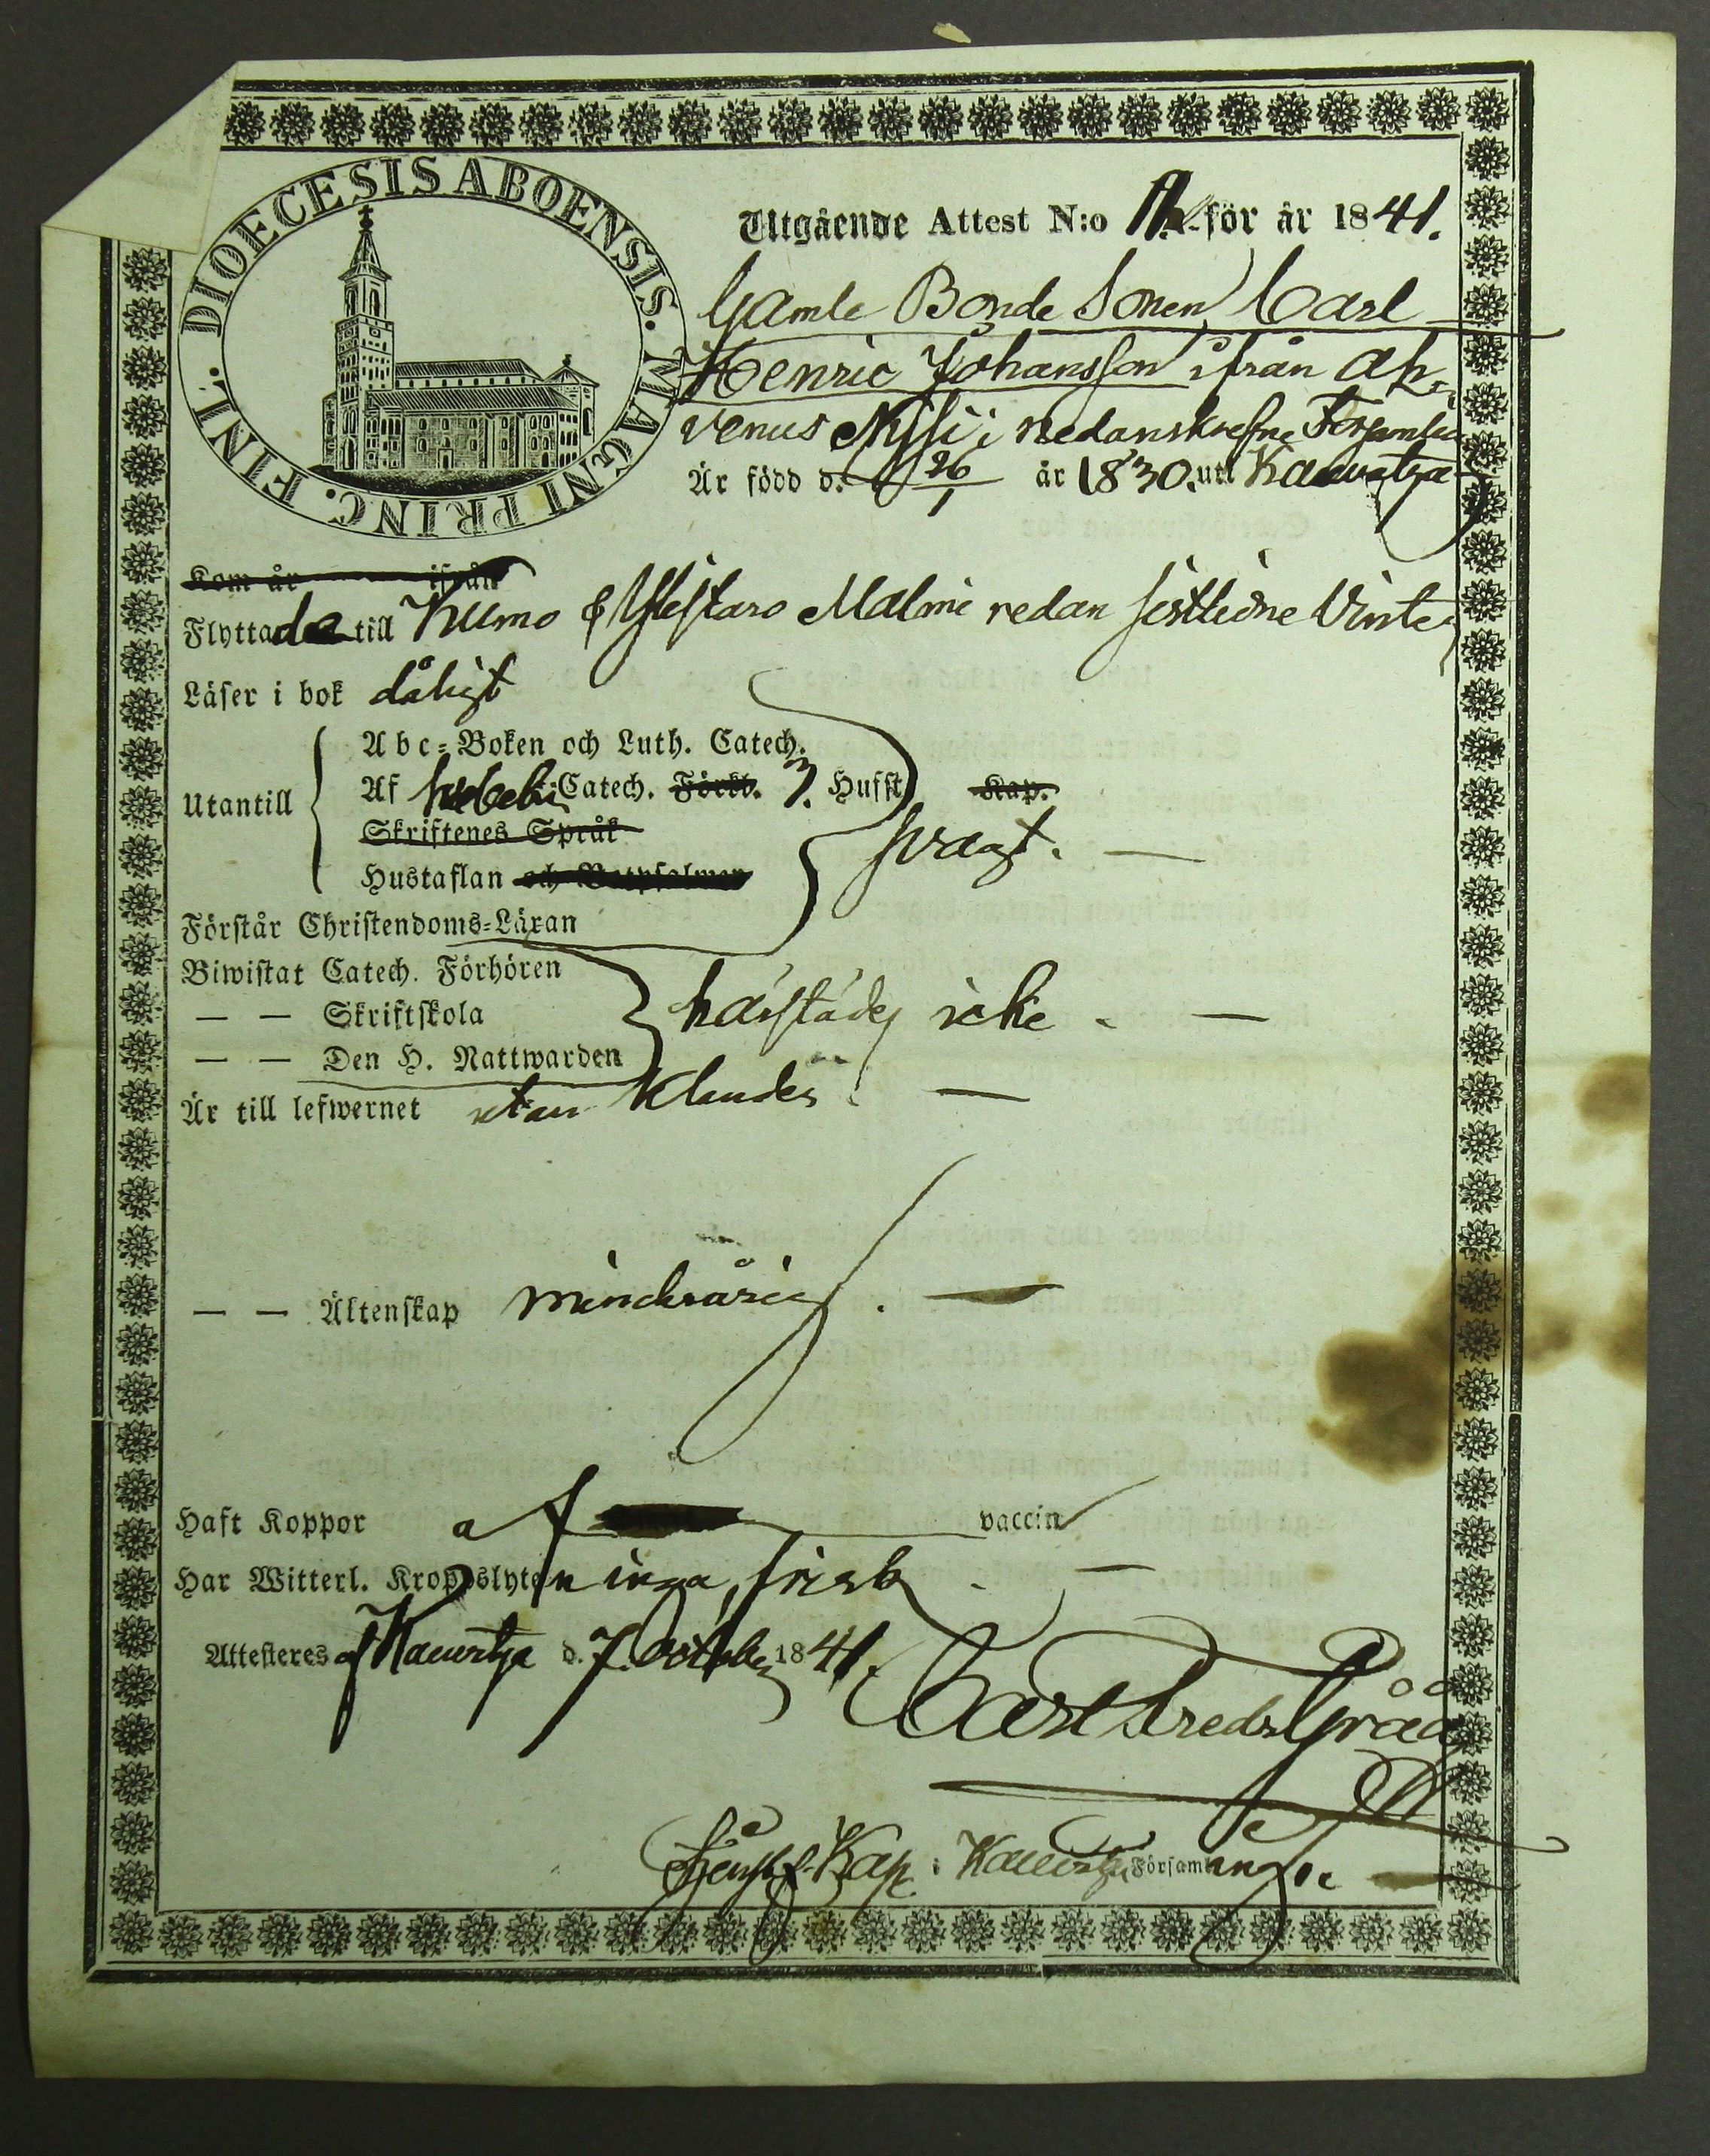 DIOECESIS ABOENSIS. MAGNI PRINC. FINL.
Utgående Attest N:o för år 1841.
Gamle Bonde Sonen Carl
Henric Johansson ifrån Ah-
venus Nissi i nedanskrefne Församling
Är född d. 26/1 år 1830. uti Kauvatsa
Kom år ifrån
Flyttade till Kumo Malmi redan sistledne Vinter
Läser i bok dåligt
Utantill
Abc-Boken och Luth. Catech.
Af Svebelii Catech. Förkl. 7. Hufst. Kap.
Skriftenes Språk
svagt.
Hustaflan och Botpsalmer
Förstår Christendoms-Läran
Biwistat Catech. Förhören
— — Skriftskola
härstädes icke
— — Den H. Nattwarden
Är till lefwernet utan klander
— — Äktenskap minderårig.
Haft Koppor af vaccin
Har Witterl. Kroppslyten inga, frisk
Attesteres af Kauvatsa d. 7. October 1841.
Carl Fredr Gråå
Kap. i Kauvatsa Församling.